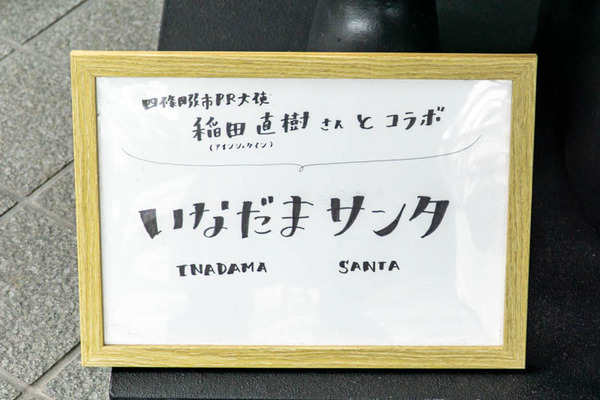 四條畷市PR大使
稲田直樹さんとコラボ
(アインシュタイン)
いなだまサンタ
INADAMA SANTA